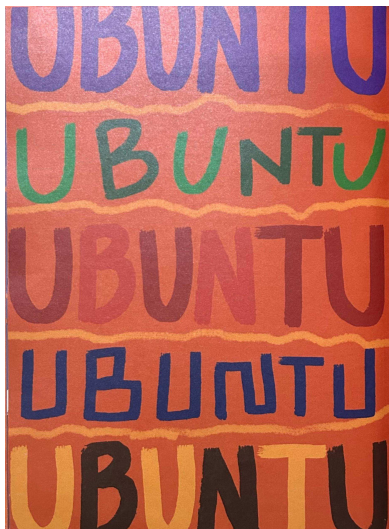 UBUNTU
UBUNTU
UBUNTU
UBUNTU
UBUNTU